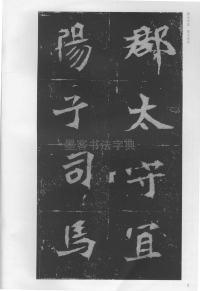 郡太守宜
陽子司馬
墨客书法字典